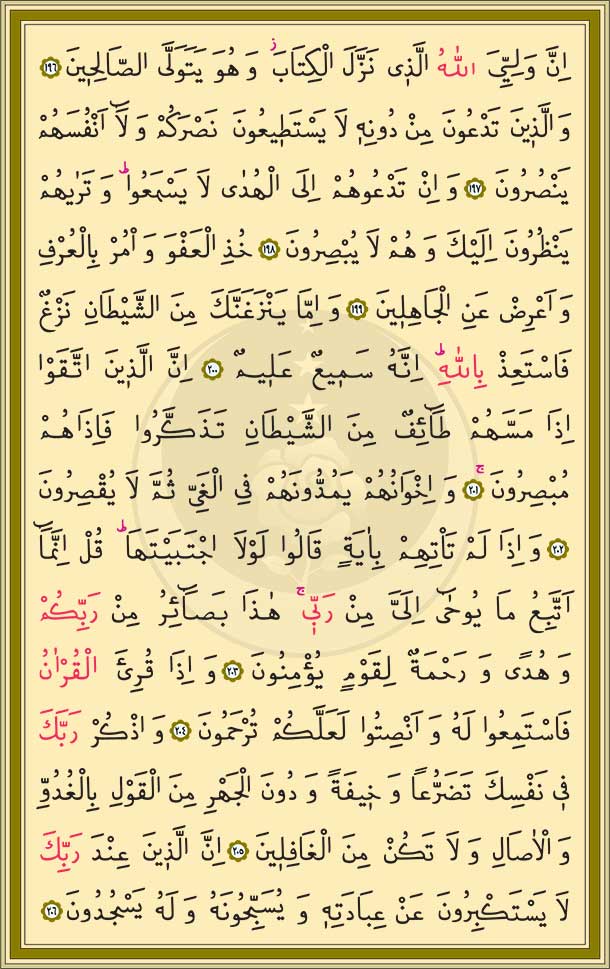 اِنَّ وَلِيِّيَ اللّٰهُ الَّذ۪ى نَزَّلَ الْكِتَابَۘ وَ هُوَ يَتَوَلَّى الصَّالِح۪ينَ ﴿١٩٦﴾
وَ الَّذ۪ينَ تَدْعُونَ مِنْ دُونِه۪ لَا يَسْتَط۪يعُونَ نَصْرَكُمْ وَ لَٓا اَنْفُسَهُمْ
يَنْصُرُونَ ﴿١٩٧﴾ وَ اِنْ تَدْعُوهُمْ اِلَى الْهُدٰى لَا يَسْمَعُواۜ وَ تَرٰيهُمْ
يَنْظُرُونَ اِلَيْكَ وَ هُمْ لَا يُبْصِرُونَ ﴿١٩٨﴾ خُذِ الْعَفْوَ وَ اْمُرْ بِالْعُرْفِ
وَ اَعْرِضْ عَنِ الْجَاهِل۪ينَ ﴿١٩٩﴾ وَ اِمَّا يَنْزَغَنَّكَ مِنَ الشَّيْطَانِ نَزْغٌ
فَاسْتَعِذْ بِاللّٰهِۜ اِنَّهُ سَم۪يعٌ عَل۪يمٌ ﴿٢٠٠﴾ اِنَّ الَّذ۪ينَ اتَّقَوْا
اِذَا مَسَّهُمْ طَٓائِفٌ مِنَ الشَّيْطَانِ تَذَكَّرُوا فَاِذَا هُمْ
مُبْصِرُونَۚ ﴿٢٠١﴾ وَ اِخْوَانُهُمْ يَمُدُّونَهُمْ فِى الْغَيِّ ثُمَّ لَا يُقْصِرُونَ
﴿٢٠٢﴾ وَ اِذَا لَمْ تَاْتِهِمْ بِاٰيَةٍ قَالُوا لَوْلَا اجْتَبَيْتَهَاۜ قُلْ اِنَّمَٓا
اَتَّبِعُ مَا يُوحٰٓى اِلَيَّ مِنْ رَبّ۪ىۚ هٰذَا بَصَٓائِرُ مِنْ رَبِّكُمْ
وَ هُدًى وَ رَحْمَةٌ لِقَوْمٍ يُؤْمِنُونَ ﴿٢٠٣﴾ وَ اِذَا قُرِئَ الْقُرْاٰنُ
فَاسْتَمِعُوا لَهُ وَ اَنْصِتُوا لَعَلَّكُمْ تُرْحَمُونَ ﴿٢٠٤﴾ وَ اذْكُرْ رَبَّكَ
ف۪ى نَفْسِكَ تَضَرُّعاً وَ خ۪يفَةً وَ دُونَ الْجَهْرِ مِنَ الْقَوْلِ بِالْغُدُوِّ
وَ الْاٰصَالِ وَ لَا تَكُنْ مِنَ الْغَافِل۪ينَ ﴿٢٠٥﴾ اِنَّ الَّذ۪ينَ عِنْدَ رَبِّكَ
لَا يَسْتَكْبِرُونَ عَنْ عِبَادَتِه۪ وَ يُسَبِّحُونَهُ وَ لَهُ يَسْجُدُونَ ﴿٢٠٦﴾